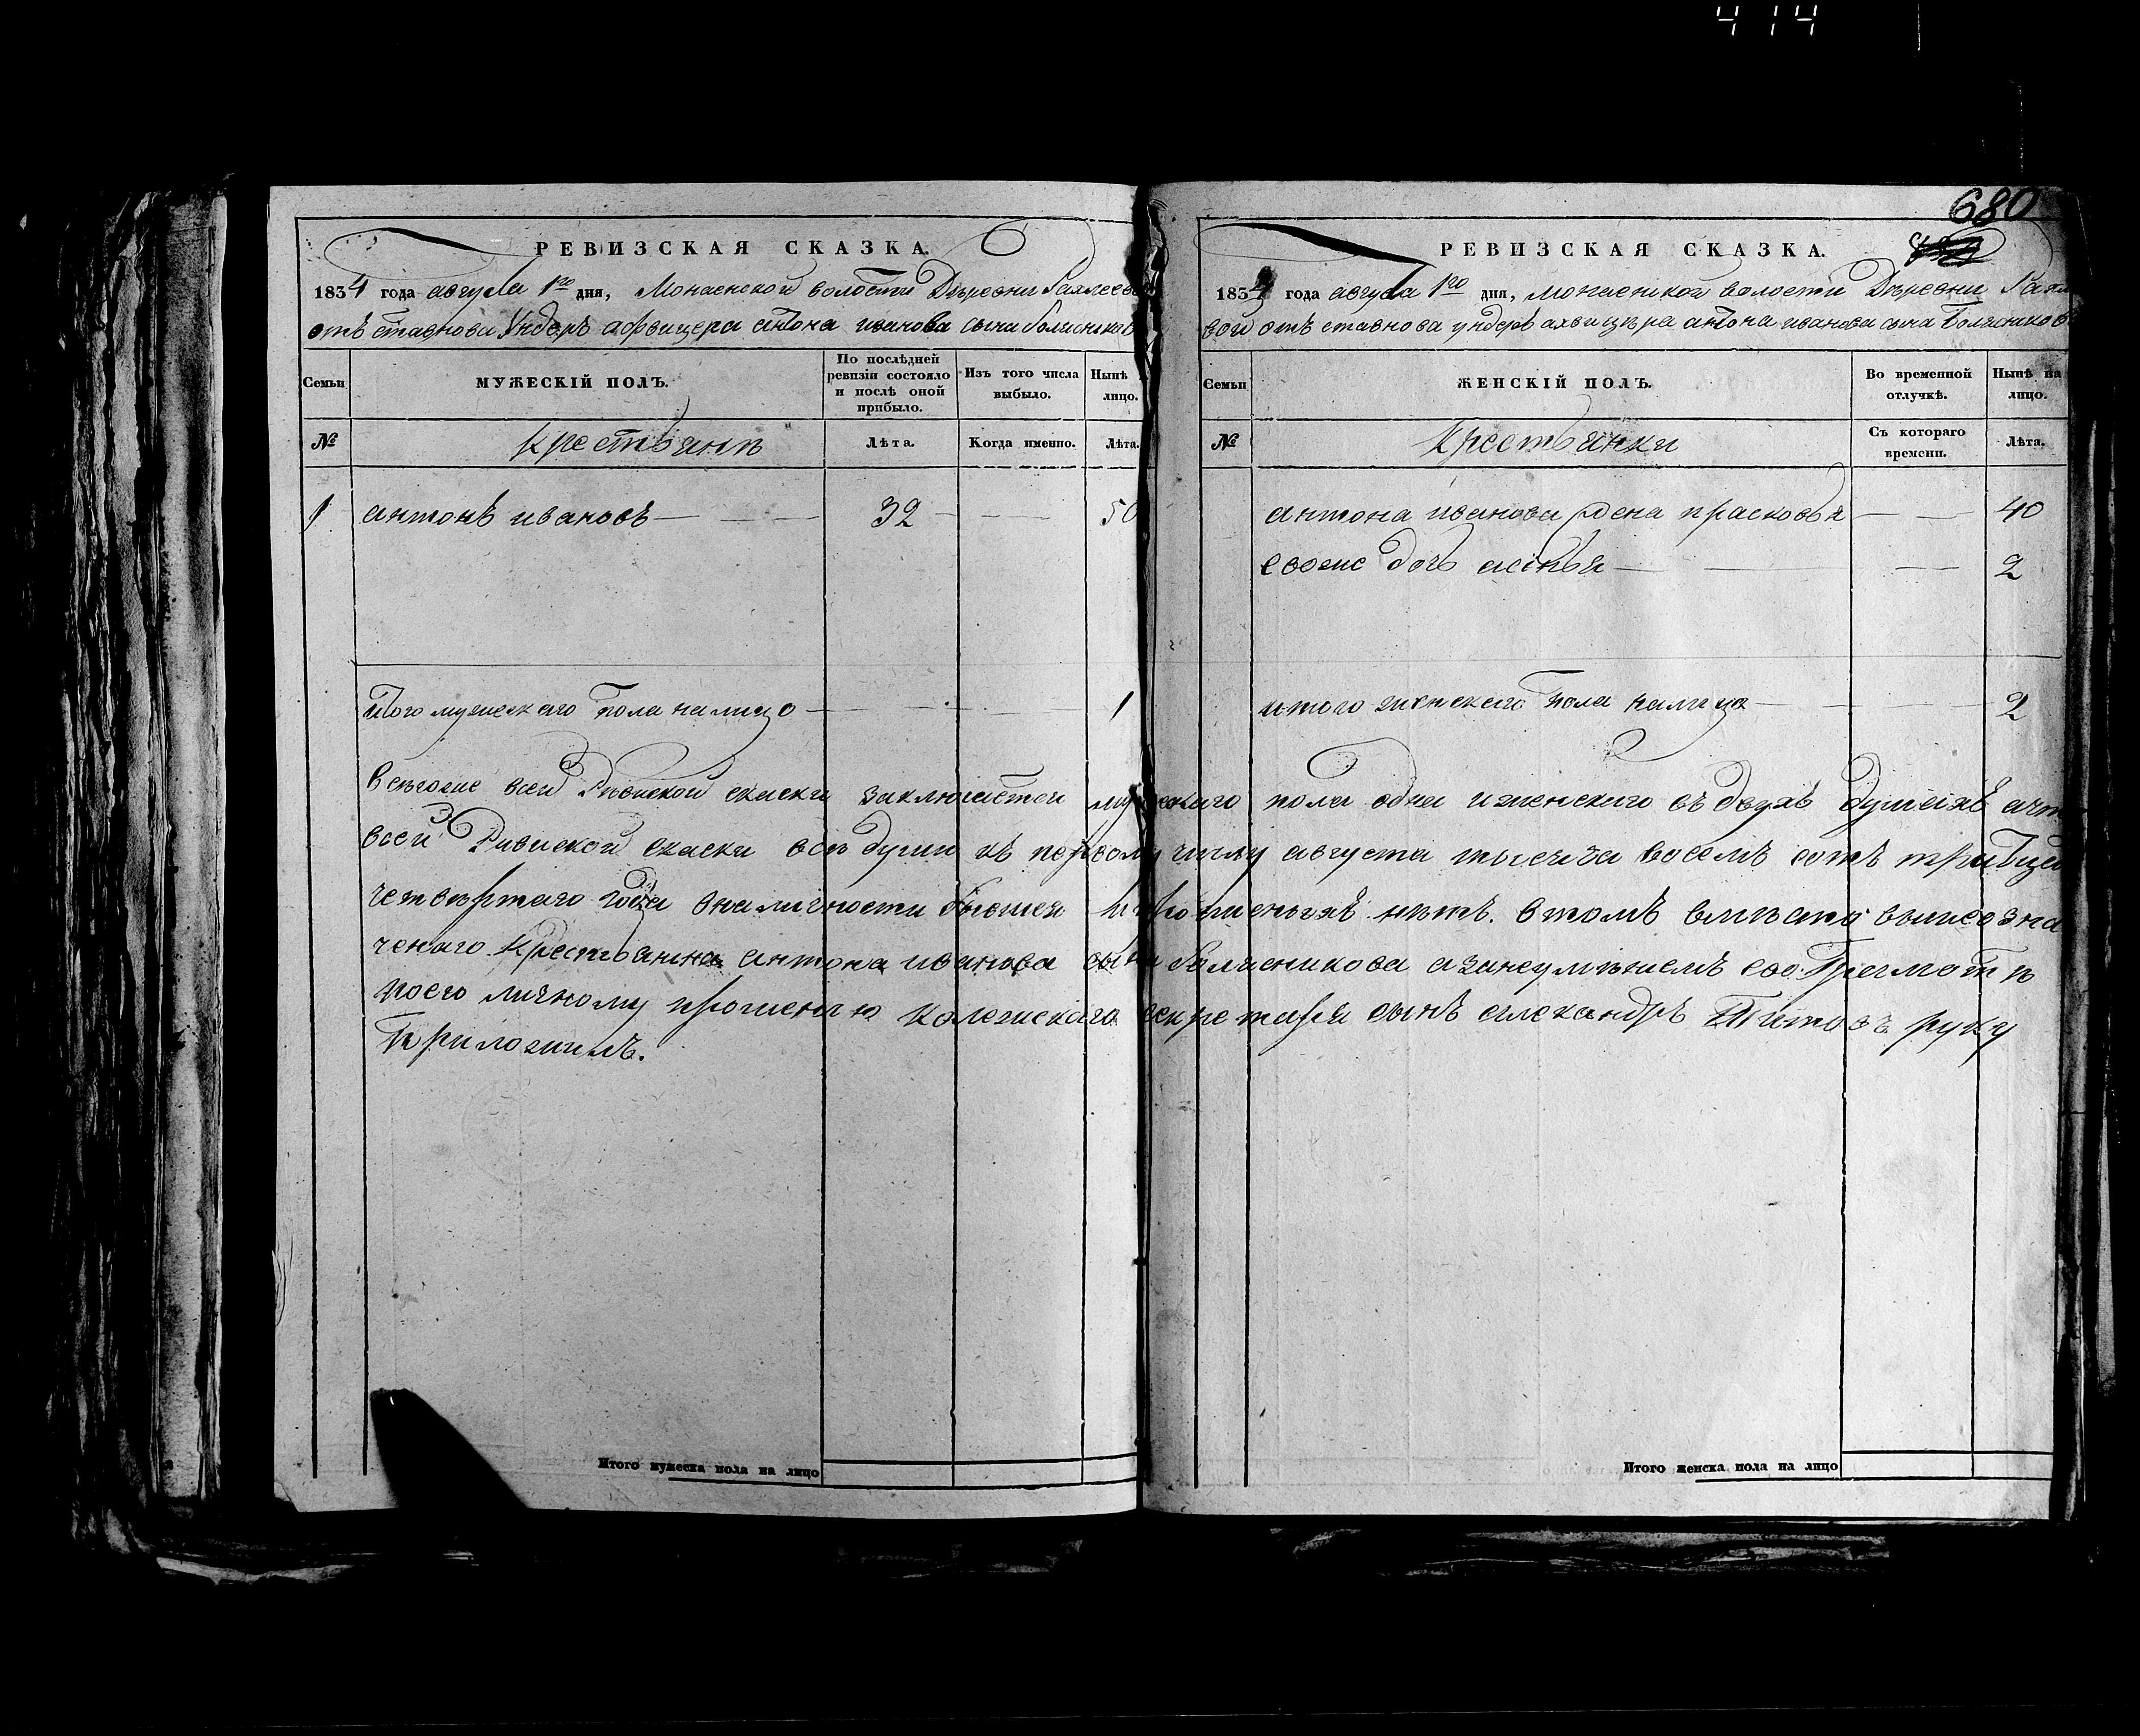 414
680
РЕВИЗСКАЯ СКАЗКА.
1834 года августа 1го дня, Монасенской волости Дѣревни
отъ ставнова Ундеръ афвицера антона иванова сына
Семьи
МУЖЕСКІЙ ПОЛЪ.
По послѣдней ревизіи состояло и послѣ оной прибыло.
Изъ того числа выбыло.
Нынѣ лицо.
№
крестьянѣ
Лѣта.
Когда именно.
Лѣта.
1 антонъ ивановъ 32 50
итого мужескаго пола налицо 1
РЕВИЗСКАЯ СКАЗКА.
1834 года августа 1го дня, монасенской волости Дѣревни
вой отъ ставнова ундеръ ахвицѣра антона иванова сына
Семьи
ЖЕНСКІЙ ПОЛЪ.
Во временной отлучкѣ.
Нынѣ на лицо.
№
Крестьянки
Съ котораго времени.
Лѣта.
антона иванова жена прасковья 40
евоже дочь 2
итого женскаго пола налицо 2
всей Ривиской скаски заключаетси мужескаго пола одна иженскаго въ двухъ душахъ ачто
всей Ривиской скаски всѣ души къ первому числу августа тысяча восемь сотъ тритца
четвѣртаго года вналичности бывшея ипрописныхъ нѣтъ. втомъ вмѣсто вышеозна
ченаго крестьянина антона иванова сына азанеумѣниемъ ево Грамотѣ
поего личному прошению колежскаго секретаря сынъ александръ Титовъ руку
Приложилъ.
Итого мужеска пола на лицо
Итого женска пола на лицо